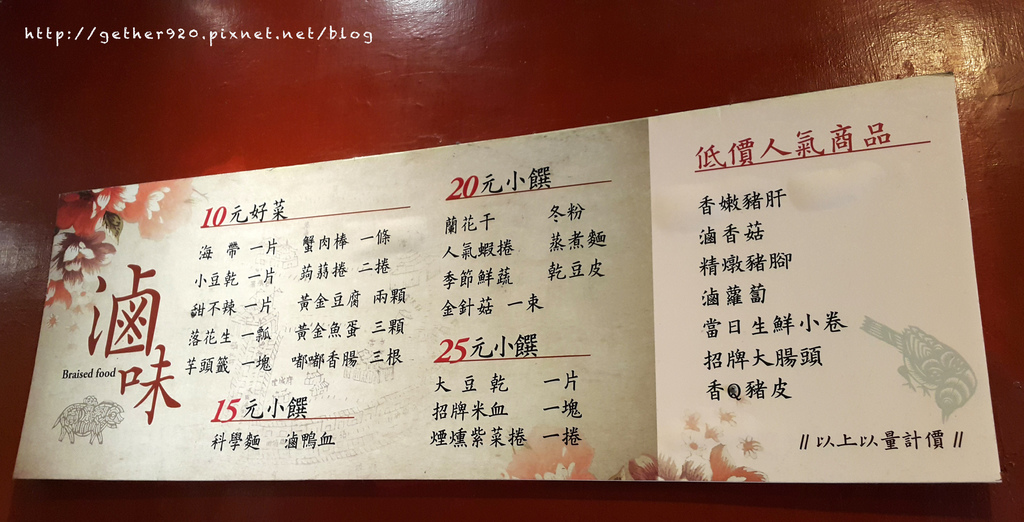 http://gether920.pixnet.net/blog
滷味
Braised food
10元好菜
海帶 一片 蟹肉棒 一條
小豆乾 一片 蒟蒻捲 二捲
甜不辣 一片 黃金豆腐 兩顆
落花生 一瓢 黃金魚蛋 三顆
芋頭籤 一塊 嘟嘟香腸 三根
15元小饌
科學麵 滷鴨血
20元小饌
蘭花干 冬粉
人氣蝦捲 蒸煮麵
季節鮮蔬 乾豆皮
金針菇 一束
25元小饌
大豆乾 一片
招牌米血 一塊
煙燻紫菜捲 一捲
低價人氣商品
香嫩豬肝
滷香菇
精燉豬腳
滷蘿蔔
當日生鮮小卷
招牌大腸頭
香Q豬皮
//以上以量計價//